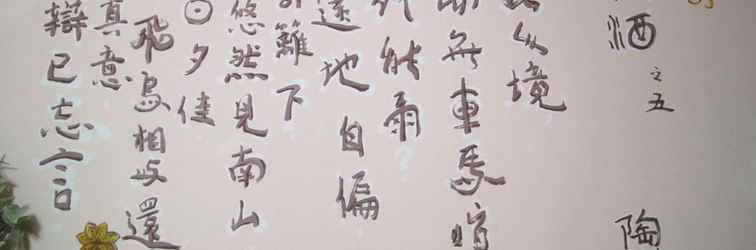 酒 之五 陶
境
無車馬喧
能爾
遠地自偏
籬下
悠然見南山
日夕佳
飛鳥相与還
真意
辯已忘言